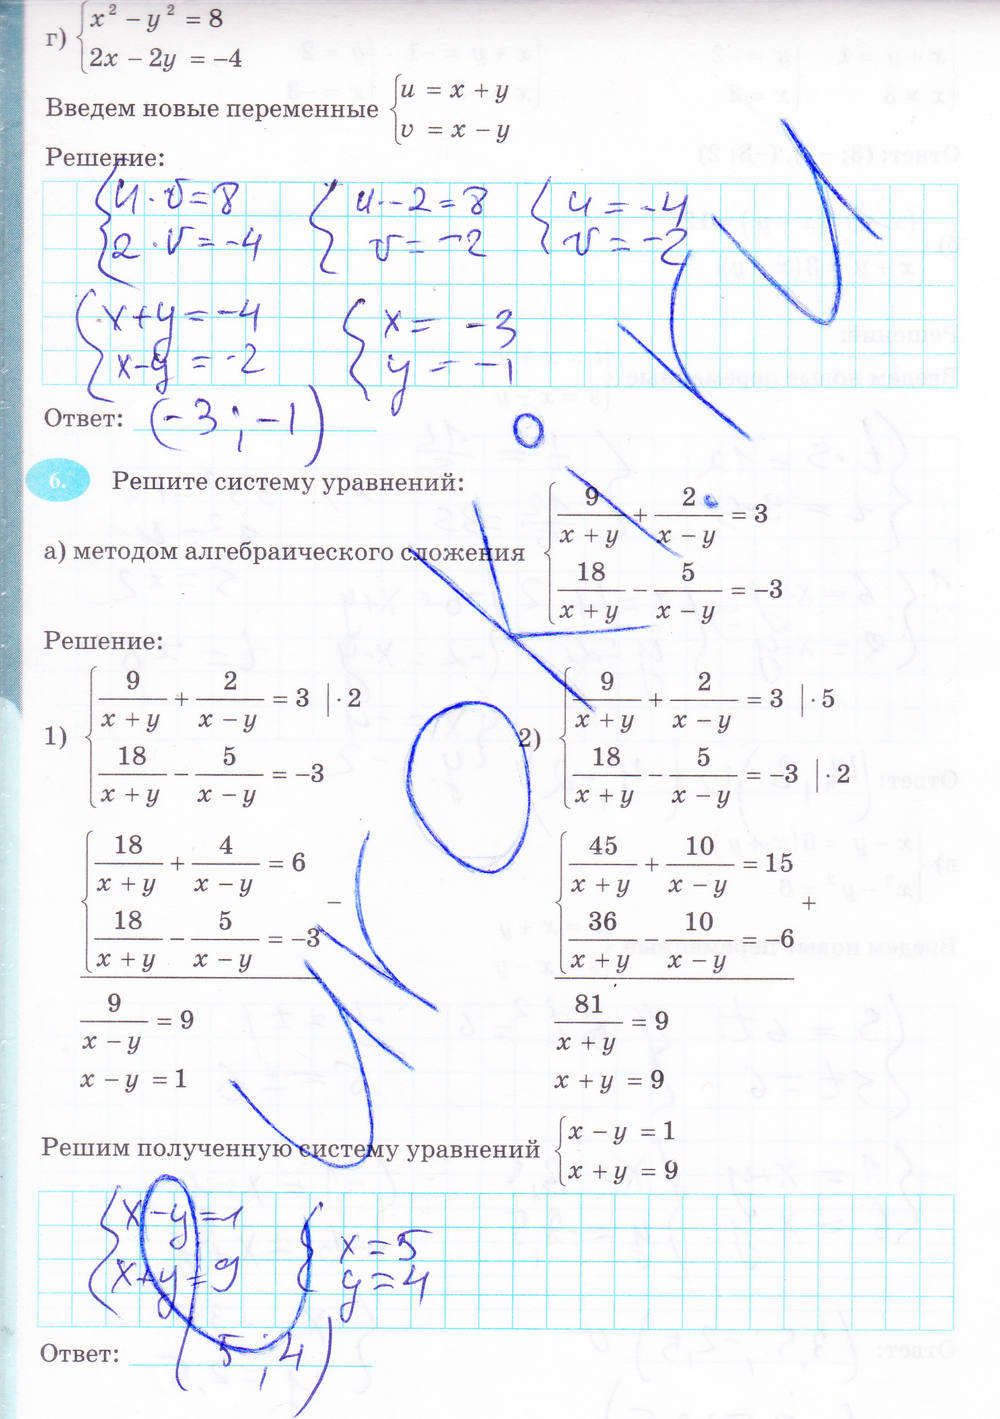 г) { x² − y² = 8
2x − 2y = −4
Введем новые переменные { u = x + y
v = x − y
Решение:
{ u · v = 8   { u · −2 = 8   { u = −4
2 · v = −4   v = −2   v = −2
{ x + y = −4   { x = −3
x − y = −2   y = −1
Ответ: (−3 ; −1)
6. Решите систему уравнений:
а) методом алгебраического сложения { 9/(x + y) + 2/(x − y) = 3
18/(x + y) − 5/(x − y) = −3
Решение:
1) { 9/(x + y) + 2/(x − y) = 3 | · 2
18/(x + y) − 5/(x − y) = −3
{ 18/(x + y) + 4/(x − y) = 6
−
18/(x + y) − 5/(x − y) = −3
9/(x − y) = 9
x − y = 1
2) { 9/(x + y) + 2/(x − y) = 3 | · 5
18/(x + y) − 5/(x − y) = −3 | · 2
{ 45/(x + y) + 10/(x − y) = 15
+
36/(x + y) − 10/(x − y) = −6
81/(x + y) = 9
x + y = 9
Решим полученную систему уравнений { x − y = 1
x + y = 9
{ x − y = 1   { x = 5
x + y = 9   y = 4
Ответ: (5 ; 4)